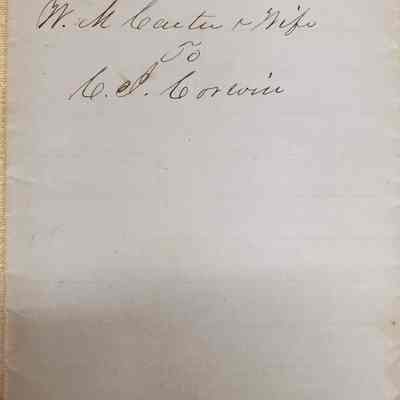 W. M Carter & Wife
To
C. J. Corwin